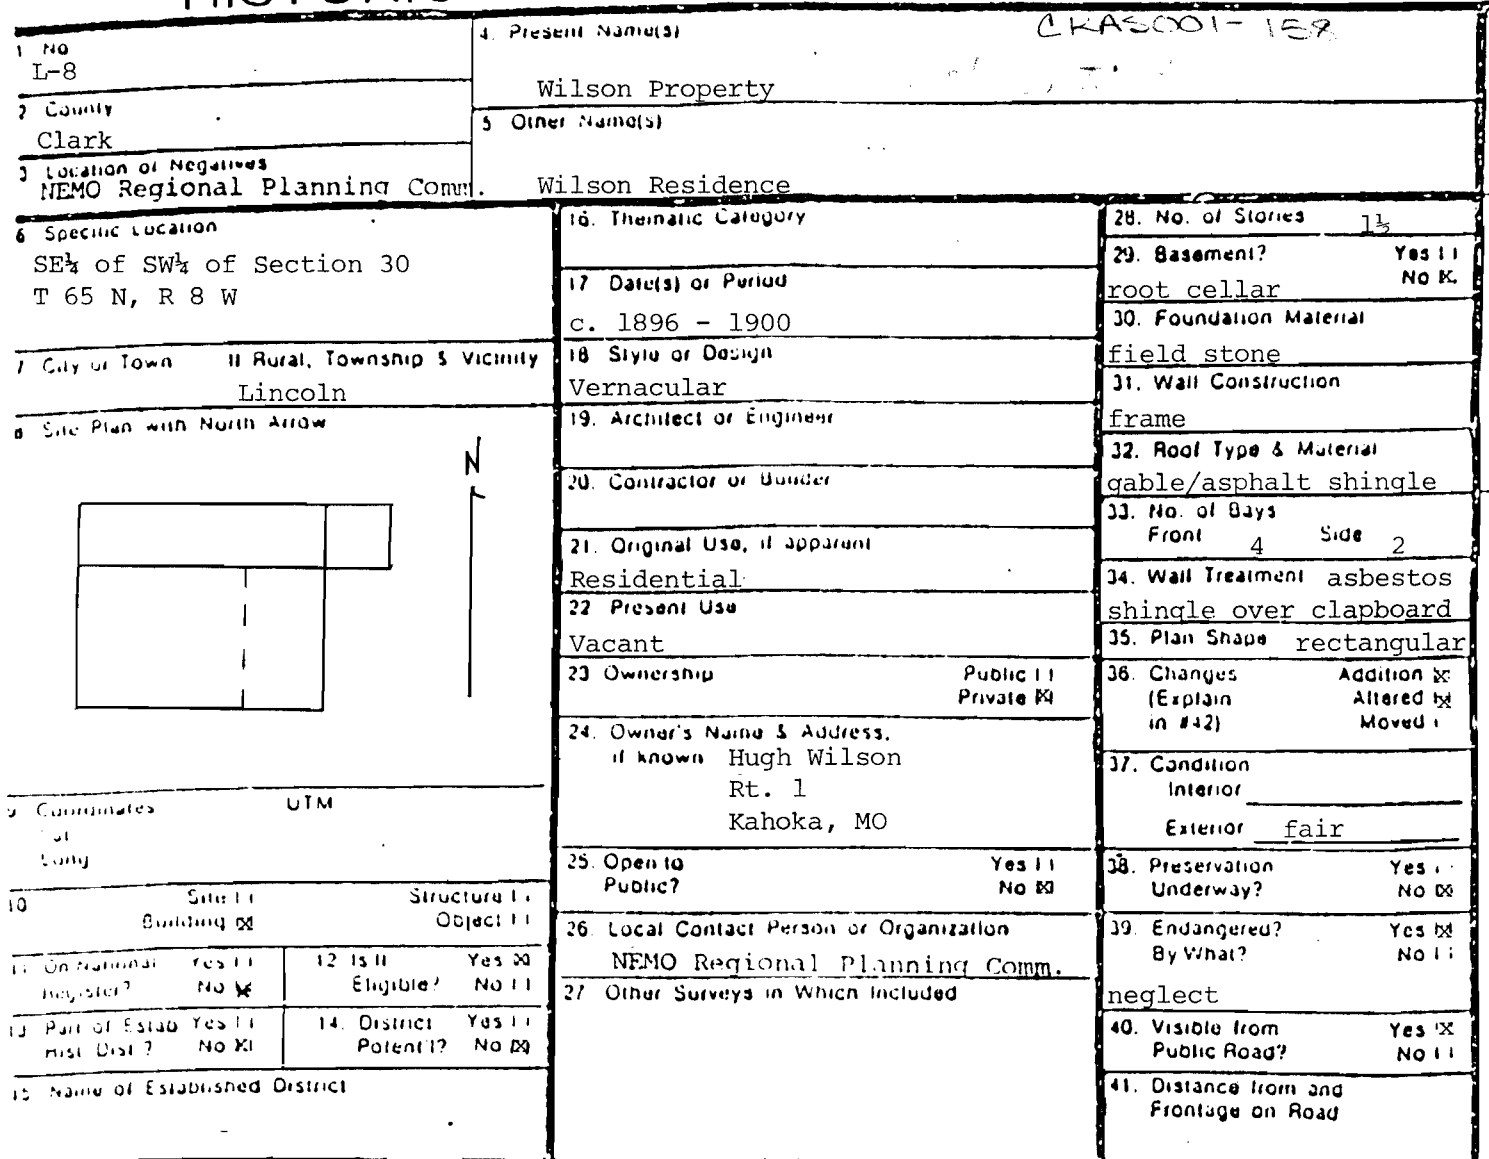 HISTORIC
CKAS001-158
1 No
L-8
4. Present Name(s)
Wilson Property
2 County
Clark
5 Other Name(s)
Wilson Residence
3 Location of Negatives
NEMO Regional Planning Comm.
6 Specific Location
SE¼ of SW¼ of Section 30
T 65 N, R 8 W
7 City or Town If Rural, Township & Vicinity
Lincoln
8 Site Plan with North Arrow
N
9 Coordinates UTM
Lat
Long
10 Site Structure
Building ☒ Object
11 On National Register? Yes No ☒
12 Is It Eligible? Yes ☒ No
13 Part of Estab Hist Dist? Yes No ☒
14. District Potent'l? Yes No ☒
15 Name of Established District
16. Thematic Category
17 Date(s) or Period
c. 1896 - 1900
18 Style or Design
Vernacular
19. Architect or Engineer
20. Contractor or Builder
21. Original Use, if apparent
Residential
22 Present Use
Vacant
23 Ownership Public
Private ☒
24. Owner's Name & Address,
if known Hugh Wilson
Rt. 1
Kahoka, MO
25. Open to Yes
Public? No ☒
26. Local Contact Person or Organization
NEMO Regional Planning Comm.
27 Other Surveys in Which Included
28. No. of Stories 1½
29. Basement? Yes
No ☒
root cellar
30. Foundation Material
field stone
31. Wall Construction
frame
32. Roof Type & Material
gable/asphalt shingle
33. No. of Bays
Front 4 Side 2
34. Wall Treatment asbestos
shingle over clapboard
35. Plan Shape rectangular
36. Changes Addition ☒
(Explain Altered ☒
in #42) Moved
37. Condition
Interior
Exterior fair
38. Preservation Yes
Underway? No ☒
39. Endangered? Yes ☒
By What? No
neglect
40. Visible from Yes ☒
Public Road? No
41. Distance from and
Frontage on Road